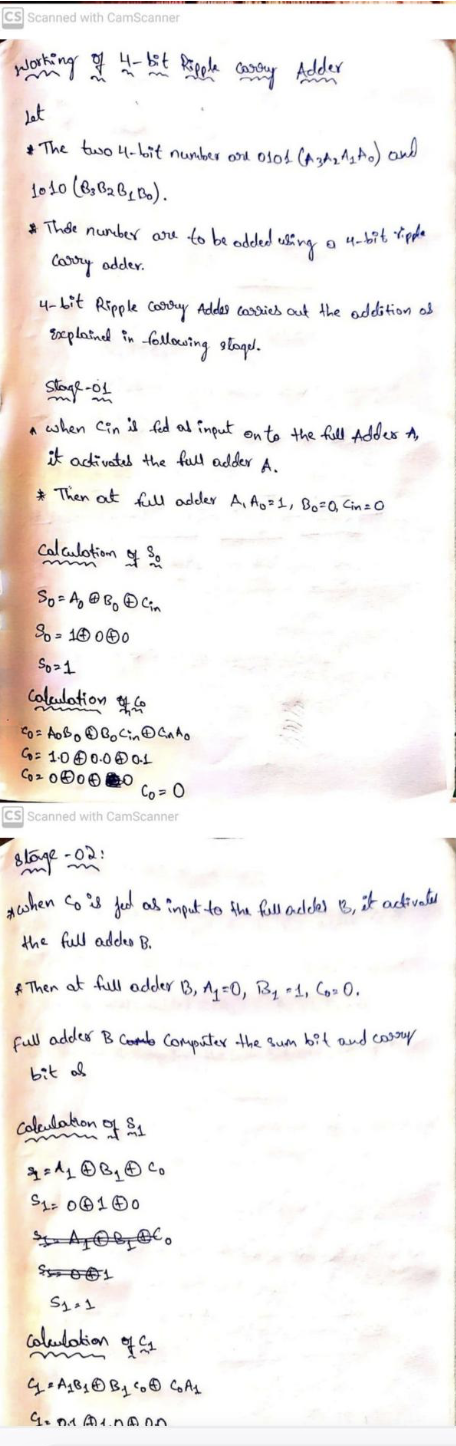 CS Scanned with CamScanner
Working of 4-bit Ripple Carry Adder
Let
* The two 4-bit number are 0101 (A3A2A1A0) and
1010 (B3B2B1B0).
* Those number are to be added using a 4-bit ripple
carry adder.
4-bit Ripple Carry Adder carries out the addition as
explained in following stages.
Stage-01
* when Cin is fed as input onto the full Adder A,
it activates the full adder A.
* Then at full adder A, A0=1, B0=0, Cin=0
Calculation of S0
S0 = A0 ⊕ B0 ⊕ Cin
S0 = 1⊕0⊕0
S0=1
Calculation of C0
C0= A0B0 ⊕ B0Cin ⊕ CinA0
C0= 1.0 ⊕ 0.0 ⊕ 0.1
C0= 0⊕0⊕ 0
C0 = 0
CS Scanned with CamScanner
Stage -02:
* when C0 is fed as input to the full adder B, it activates
the full adder B.
* Then at full adder B, A1=0, B1=1, C0=0.
Full adder B Comb Computer the sum bit and carry
bit as
Calculation of S1
S1=A1 ⊕ B1 ⊕ C0
S1= 0⊕1⊕0
S1= A1⊕B1⊕C0
S1= 0⊕1
S1=1
Calculation of C1
C1=A1B1⊕ B1C0⊕ C0A1
C1= 0.1 ⊕1.0⊕ 0.0